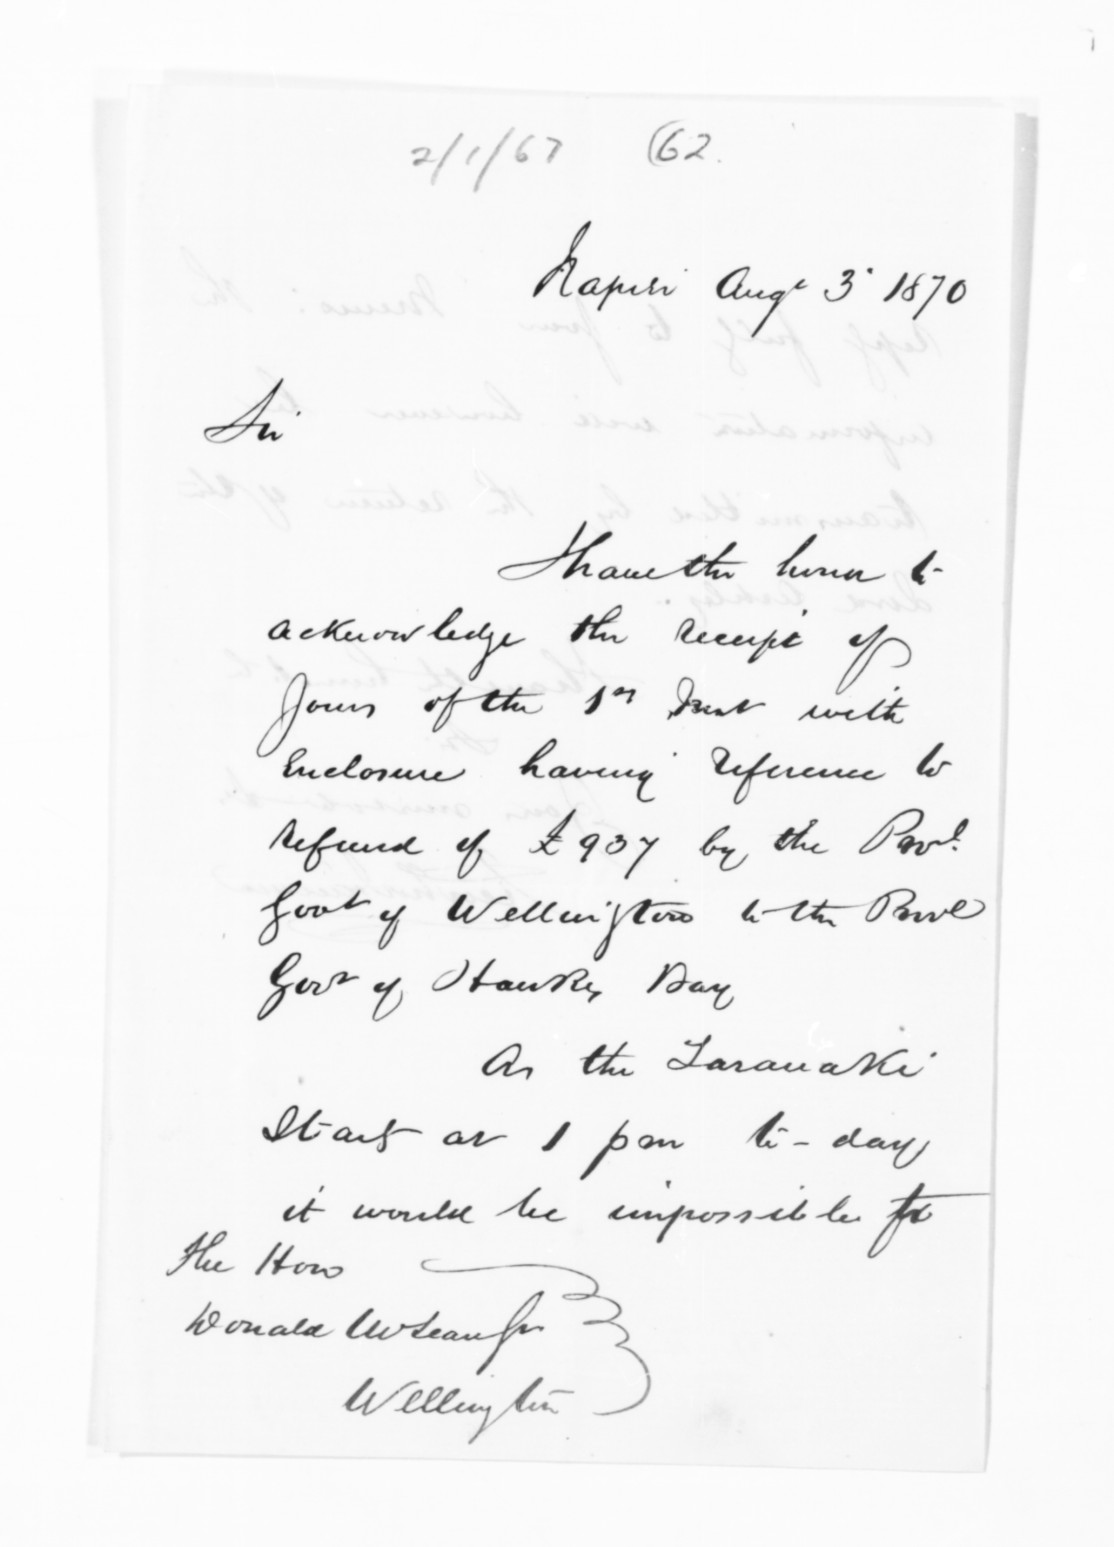 2/1/67 (62.
Napier Augt 3 1870
Sir
I have the honor to
acknowledge the receipt of
Yours of the 1st Inst with
Enclosure having reference to
refund of £937 by the Provl.
Govt of Wellington to the Provl
Govt of Hawkes Bay
As the Taranaki
Starts at 1 pm to-day
it would be impossible to
The Hon
Donald McLean
Wellington